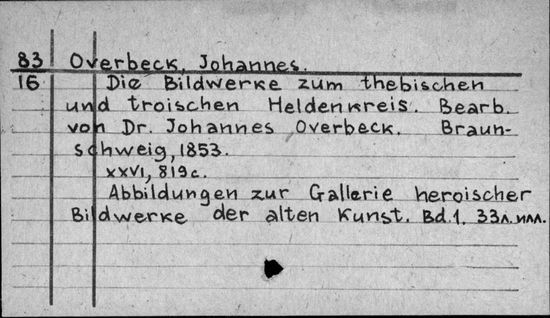 83 Overbeck, Johannes.
16 Die Bildwerke zum thebischen
und troischen Heldenkreis. Bearb.
von Dr. Johannes Overbeck. Braun-
schweig, 1853.
XXVI, 819 с.
Abbildungen zur Gallerie heroischer
Bildwerke der alten Kunst. Bd. 1. 33 л. илл.